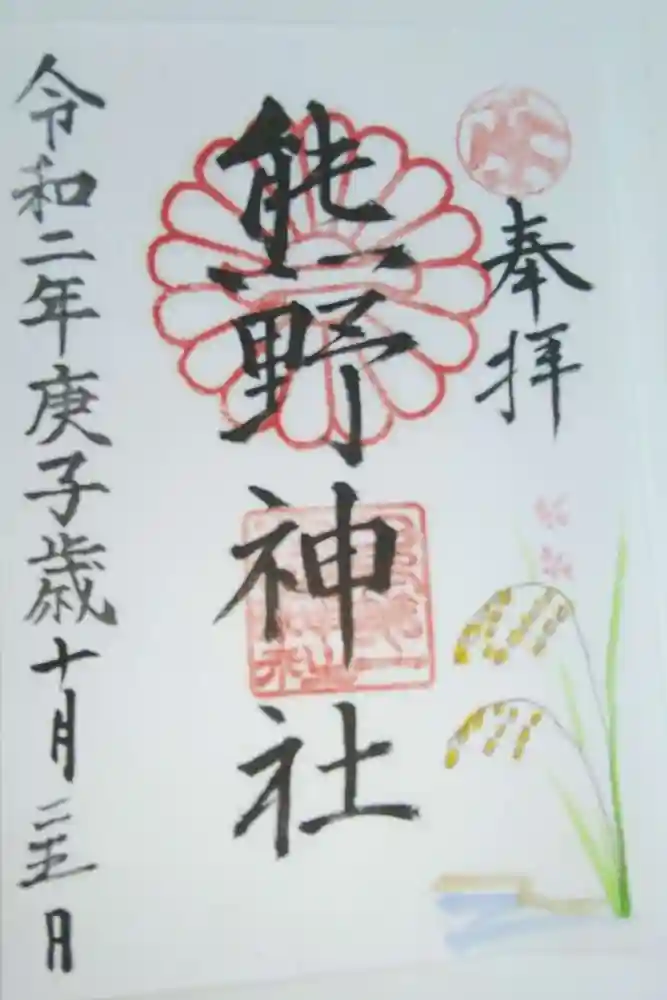 奉拝
熊野神社
令和二年庚子歳十月日